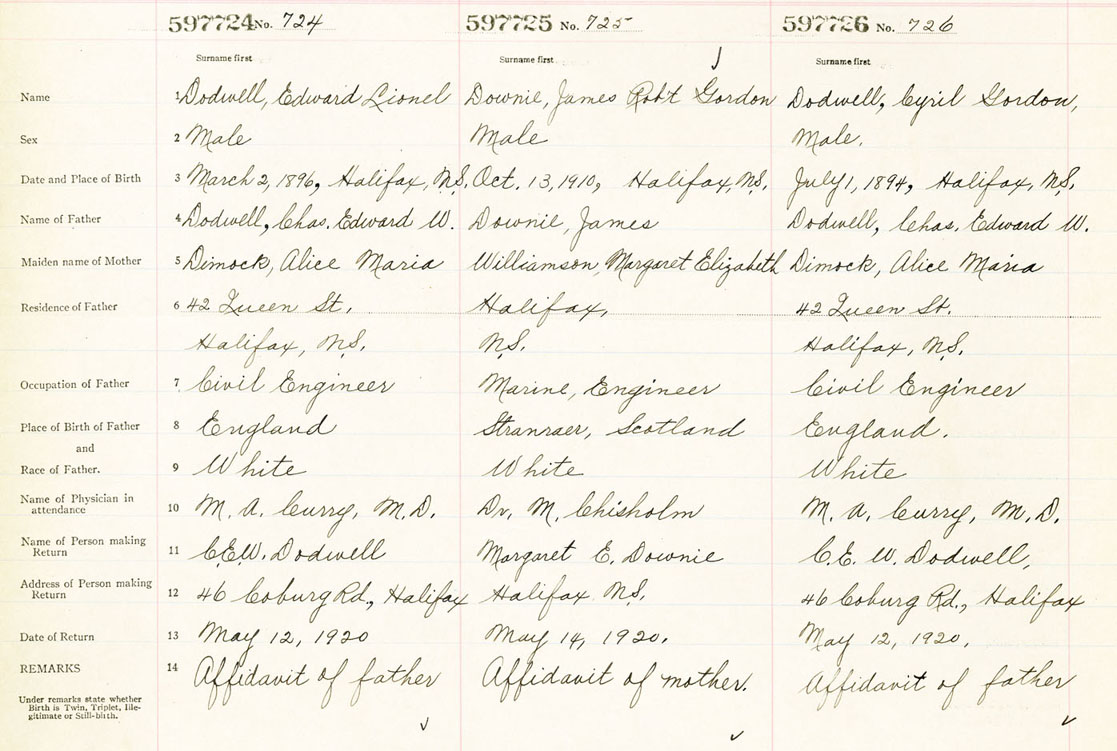 597724 No. 724 597725 No. 725 597726 No. 726
Surname first Surname first Surname first
Name 1 Dodwell, Edward Lionel Downie, James Robt Gordon Dodwell, Cyril Gordon,
Sex 2 Male Male Male.
Date and Place of Birth 3 March 2, 1896, Halifax, N.S. Oct. 13, 1910, Halifax, N.S. July 1, 1894, Halifax, N.S.
Name of Father 4 Dodwell, Chas. Edward W. Downie, James Dodwell, Chas. Edward W.
Maiden name of Mother 5 Dimock, Alice Maria Williamson, Margaret Elizabeth Dimock, Alice Maria
Residence of Father 6 42 Queen St., Halifax, 42 Queen St.
Halifax, N.S. N.S. Halifax, N.S.
Occupation of Father 7 Civil Engineer Marine, Engineer Civil Engineer
Place of Birth of Father 8 England Stranraer, Scotland England.
and
Race of Father. 9 White White White
Name of Physician in
attendance 10 M. A. Curry, M.D. Dr. M. Chisholm M. A. Curry, M.D.
Name of Person making
Return 11 C.E.W. Dodwell Margaret E. Downie C. E. W. Dodwell,
Address of Person making
Return 12 46 Coburg Rd., Halifax Halifax N.S. 46 Coburg Rd., Halifax
Date of Return 13 May 12, 1920 May 14, 1920. May 12, 1920.
REMARKS 14 Affidavit of father Affidavit of mother. Affidavit of father
Under remarks state whether
Birth is Twin, Triplet, Ille-
gitimate or Still-birth.